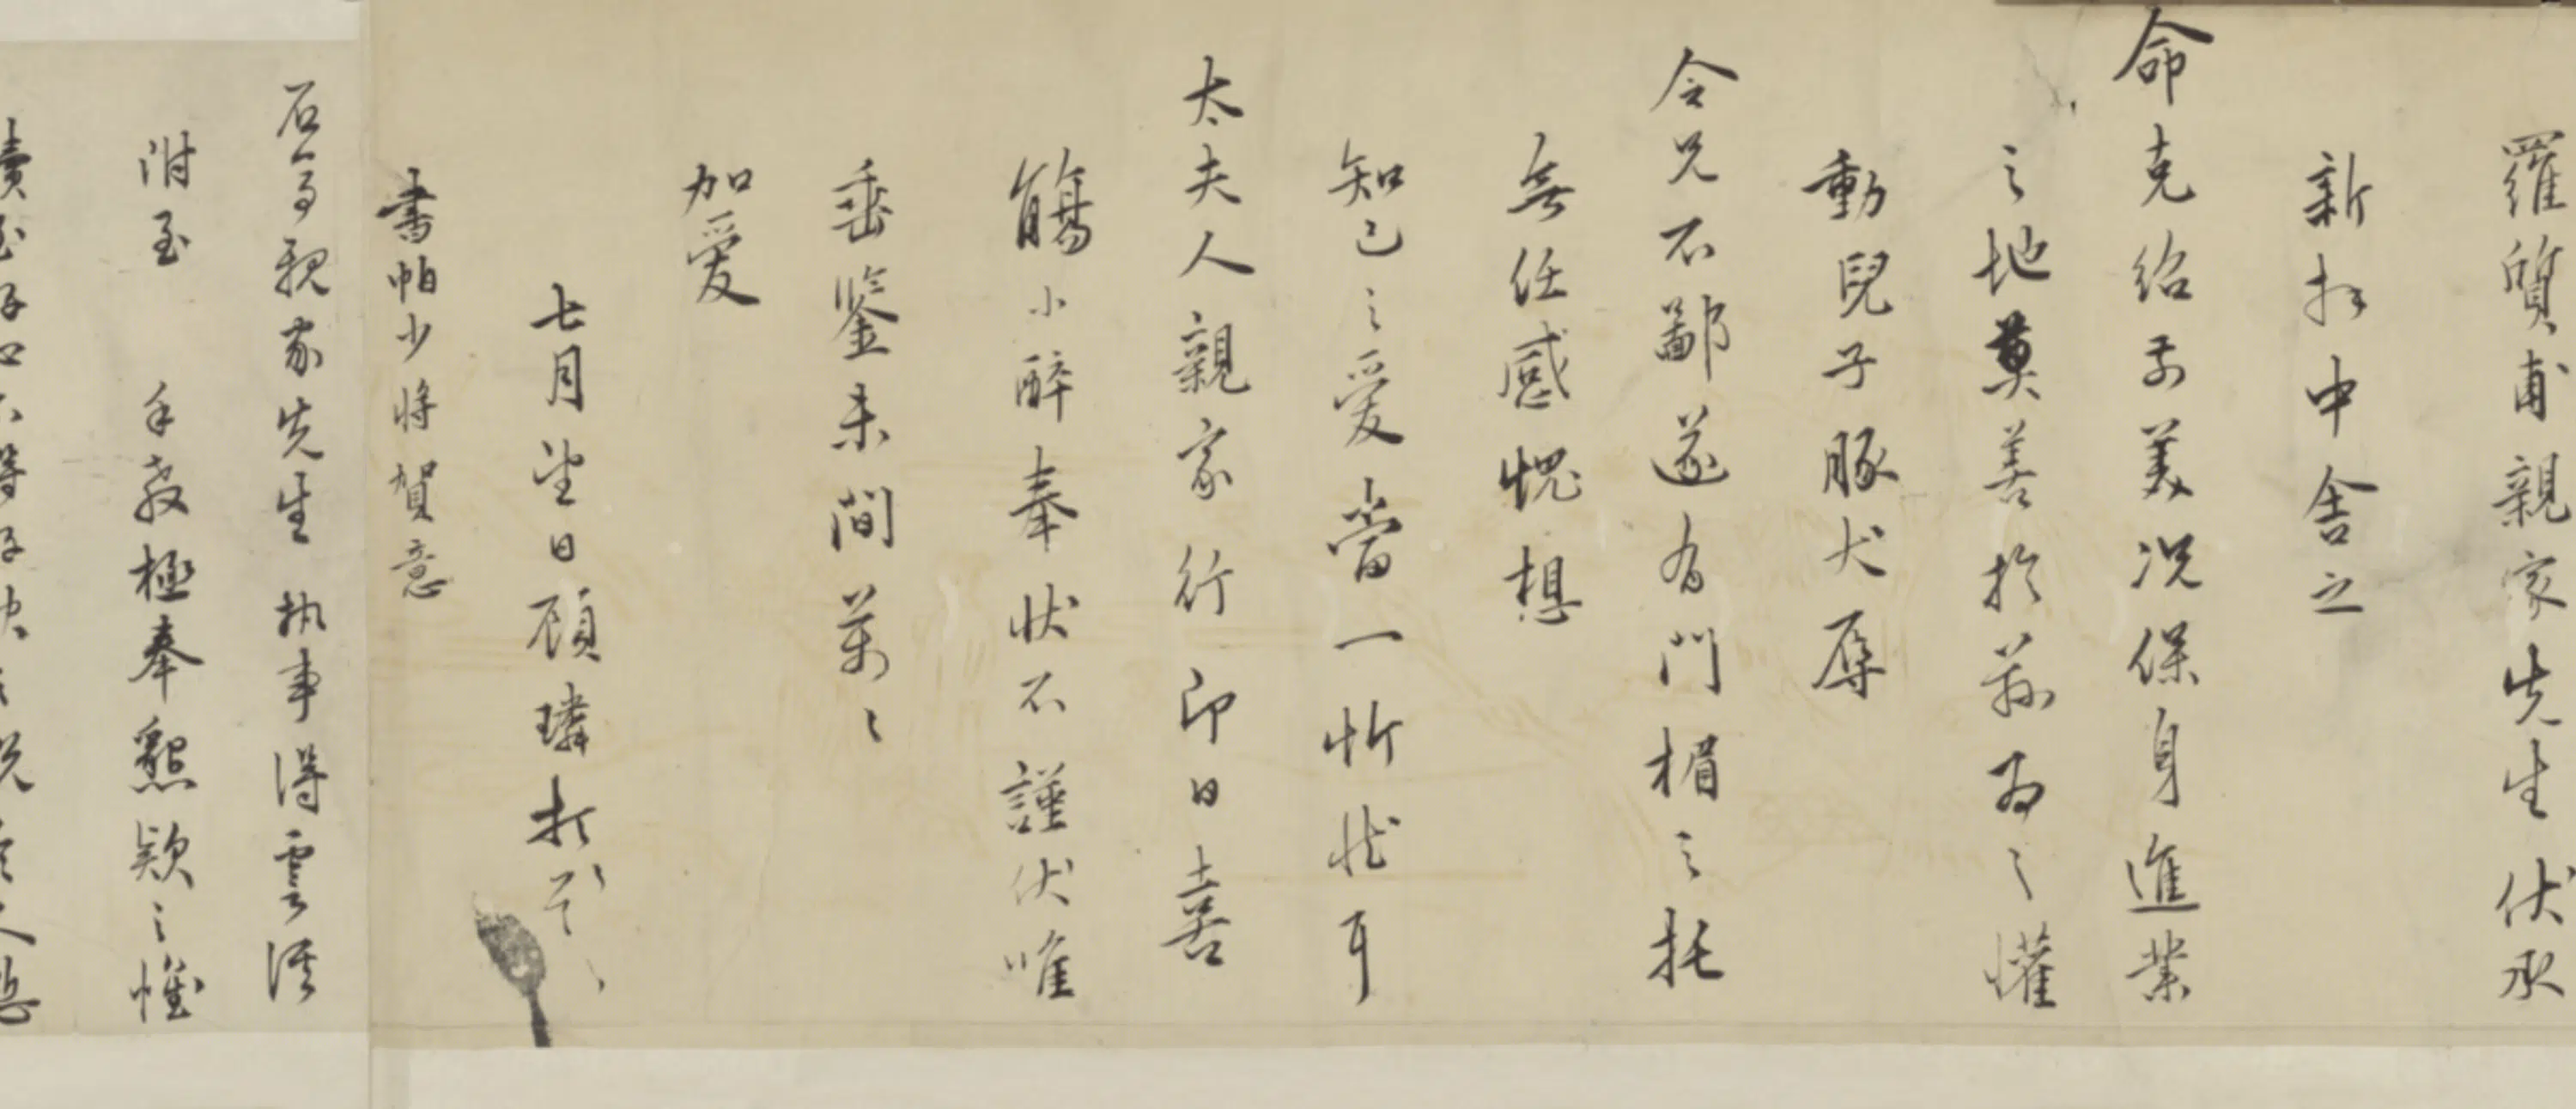 羅質甫親家先生伏承
新拜中舍之
命克紹前美況保身進業
之地莫善於茲為之懽
動兒子豚犬辱
令兄不鄙遂有門楣之托
無任感愧想
知己之愛當一忻懋耳
太夫人親家行即日喜
觴小醉奉狀不謹伏唯
垂鑒未間萬〻
加愛
七月望日顧璘拜
書帕少將賀意
石亭親家先生執事得雲溪
附至手教極奉懇款之懷